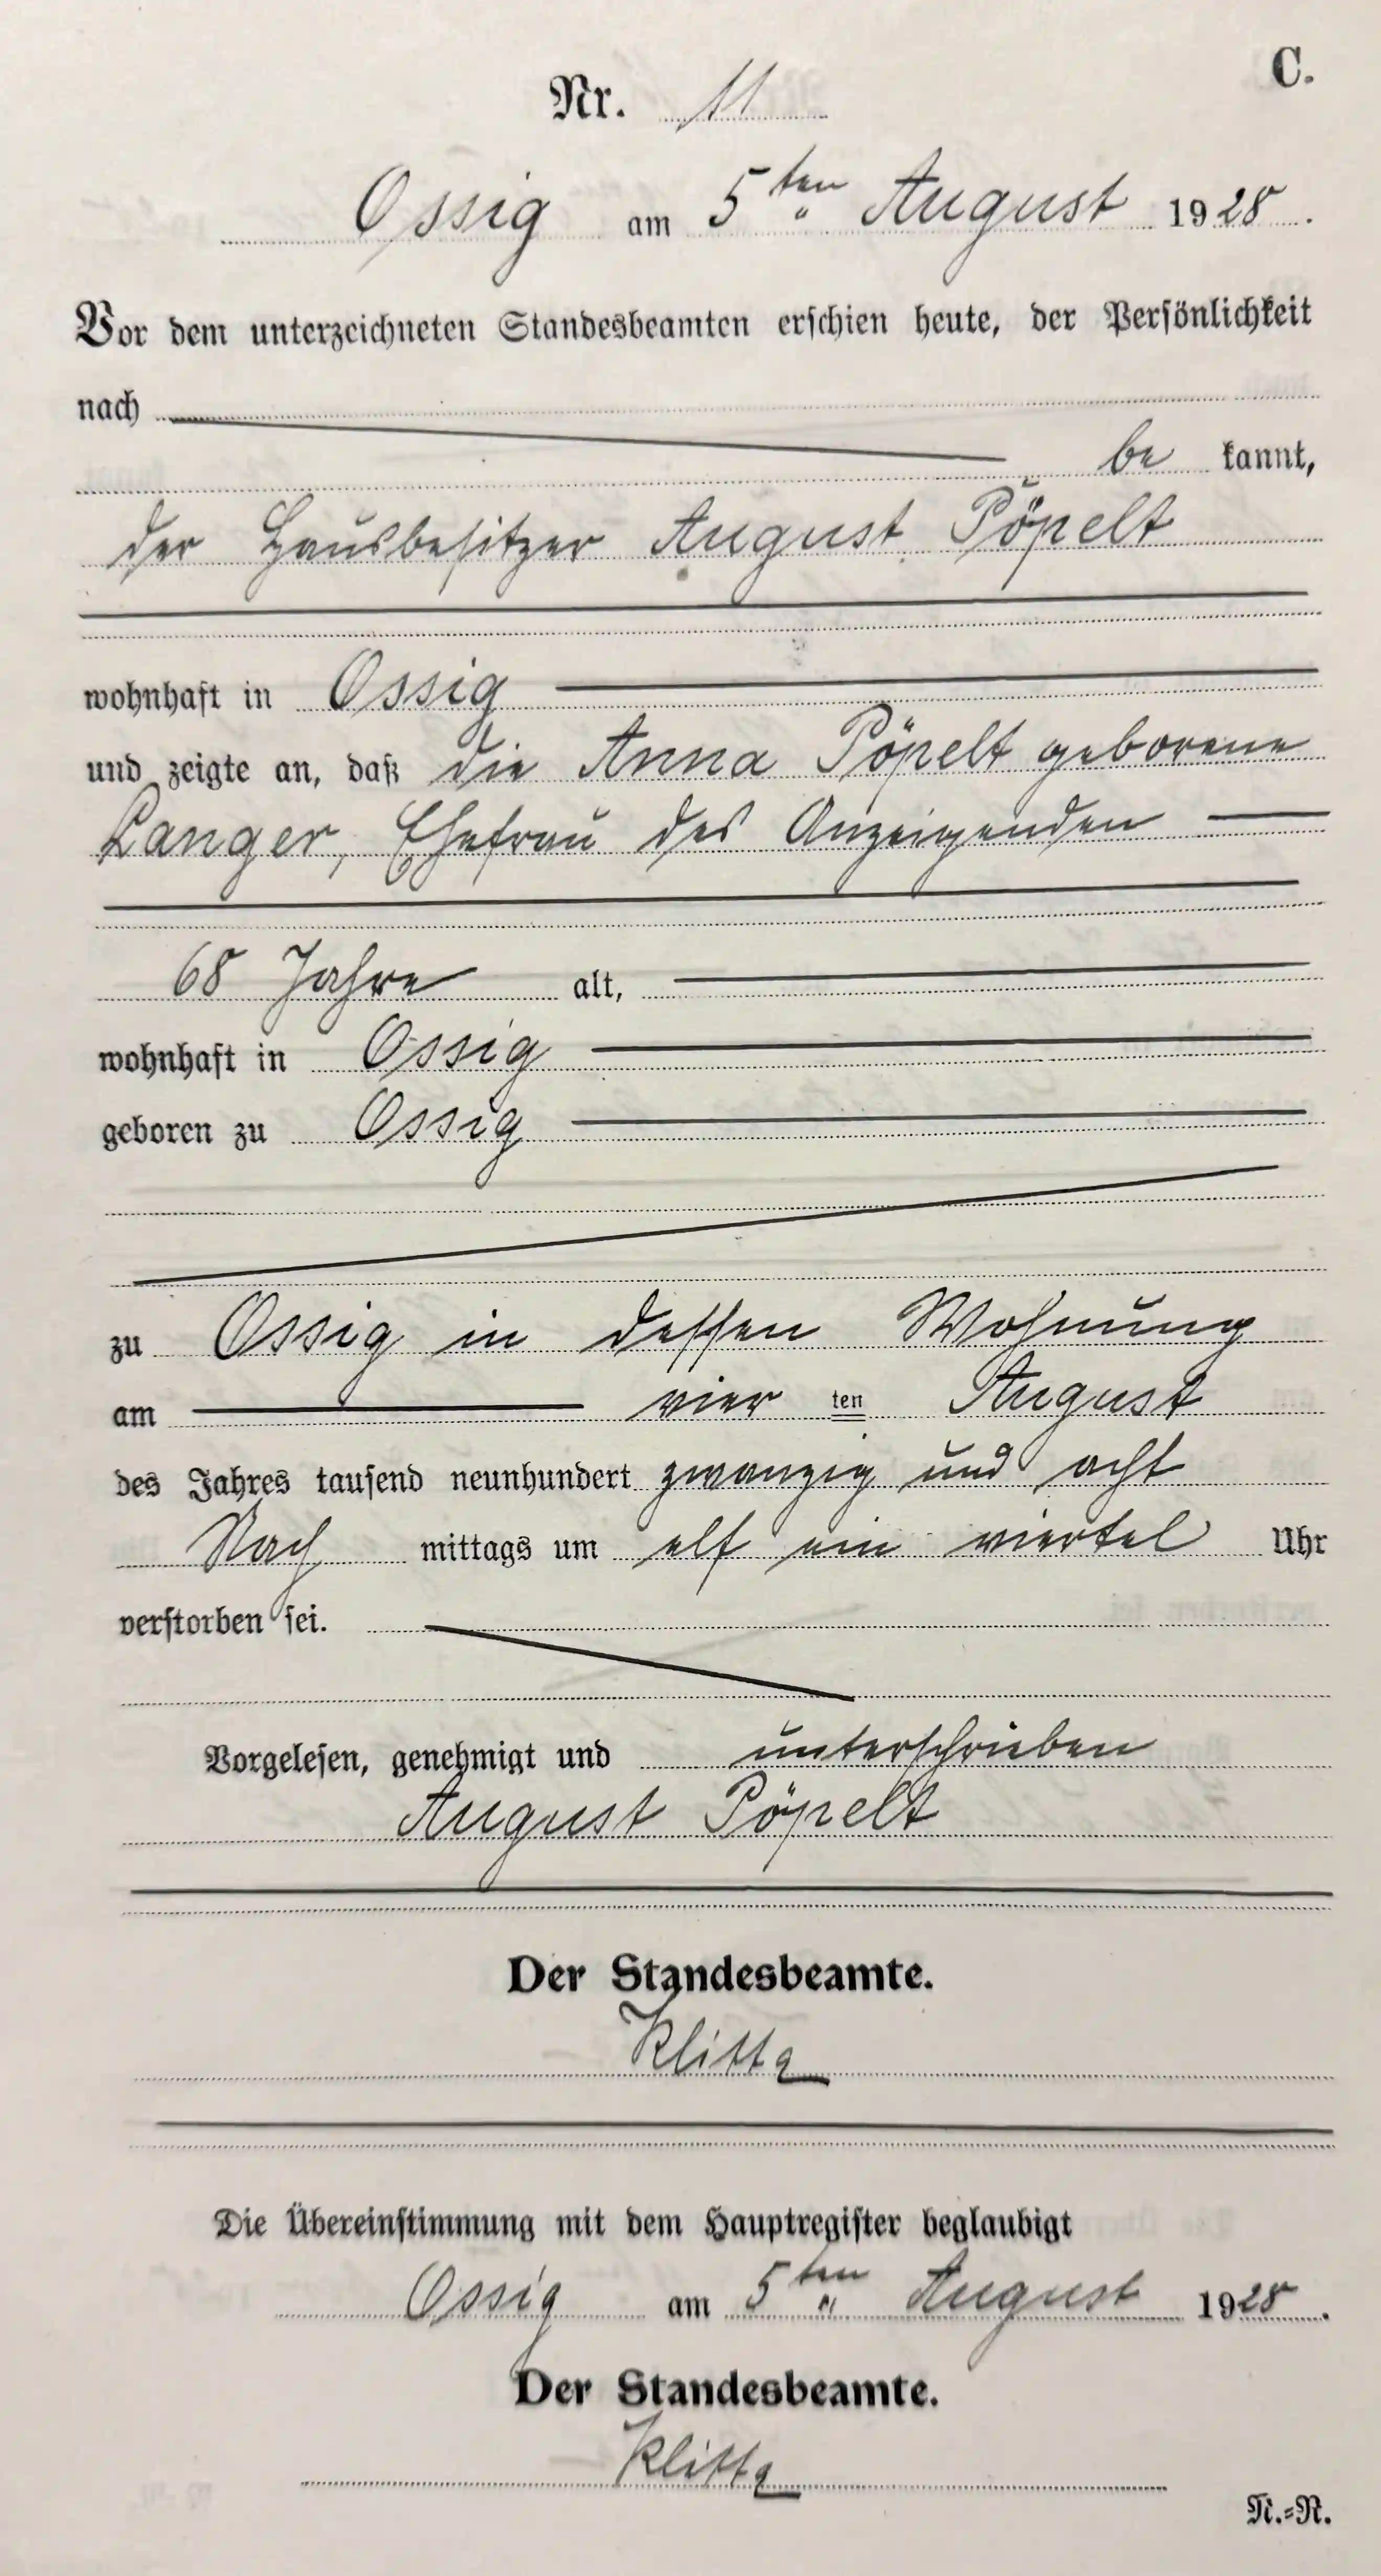 C.
Nr. 11
Ossig am 5ten August 1928.
Vor dem unterzeichneten Standesbeamten erschien heute, der Persönlichkeit
nach
be kannt,
der Hausbesitzer August Pöpelt
wohnhaft in Ossig
und zeigte an, daß die Anna Pöpelt geborene
Langer, Ehefrau des Anzeigenden
68 Jahre alt,
wohnhaft in Ossig
geboren zu Ossig
zu Ossig in dessen Wohnung
am vier ten August
des Jahres tausend neunhundert zwanzig und acht
Nach mittags um elf ein viertel Uhr
verstorben sei.
Vorgelesen, genehmigt und unterschrieben
August Pöpelt
Der Standesbeamte.
Klitta
Die Übereinstimmung mit dem Hauptregister beglaubigt
Ossig am 5ten August 1928.
Der Standesbeamte.
Klitta
N.=R.